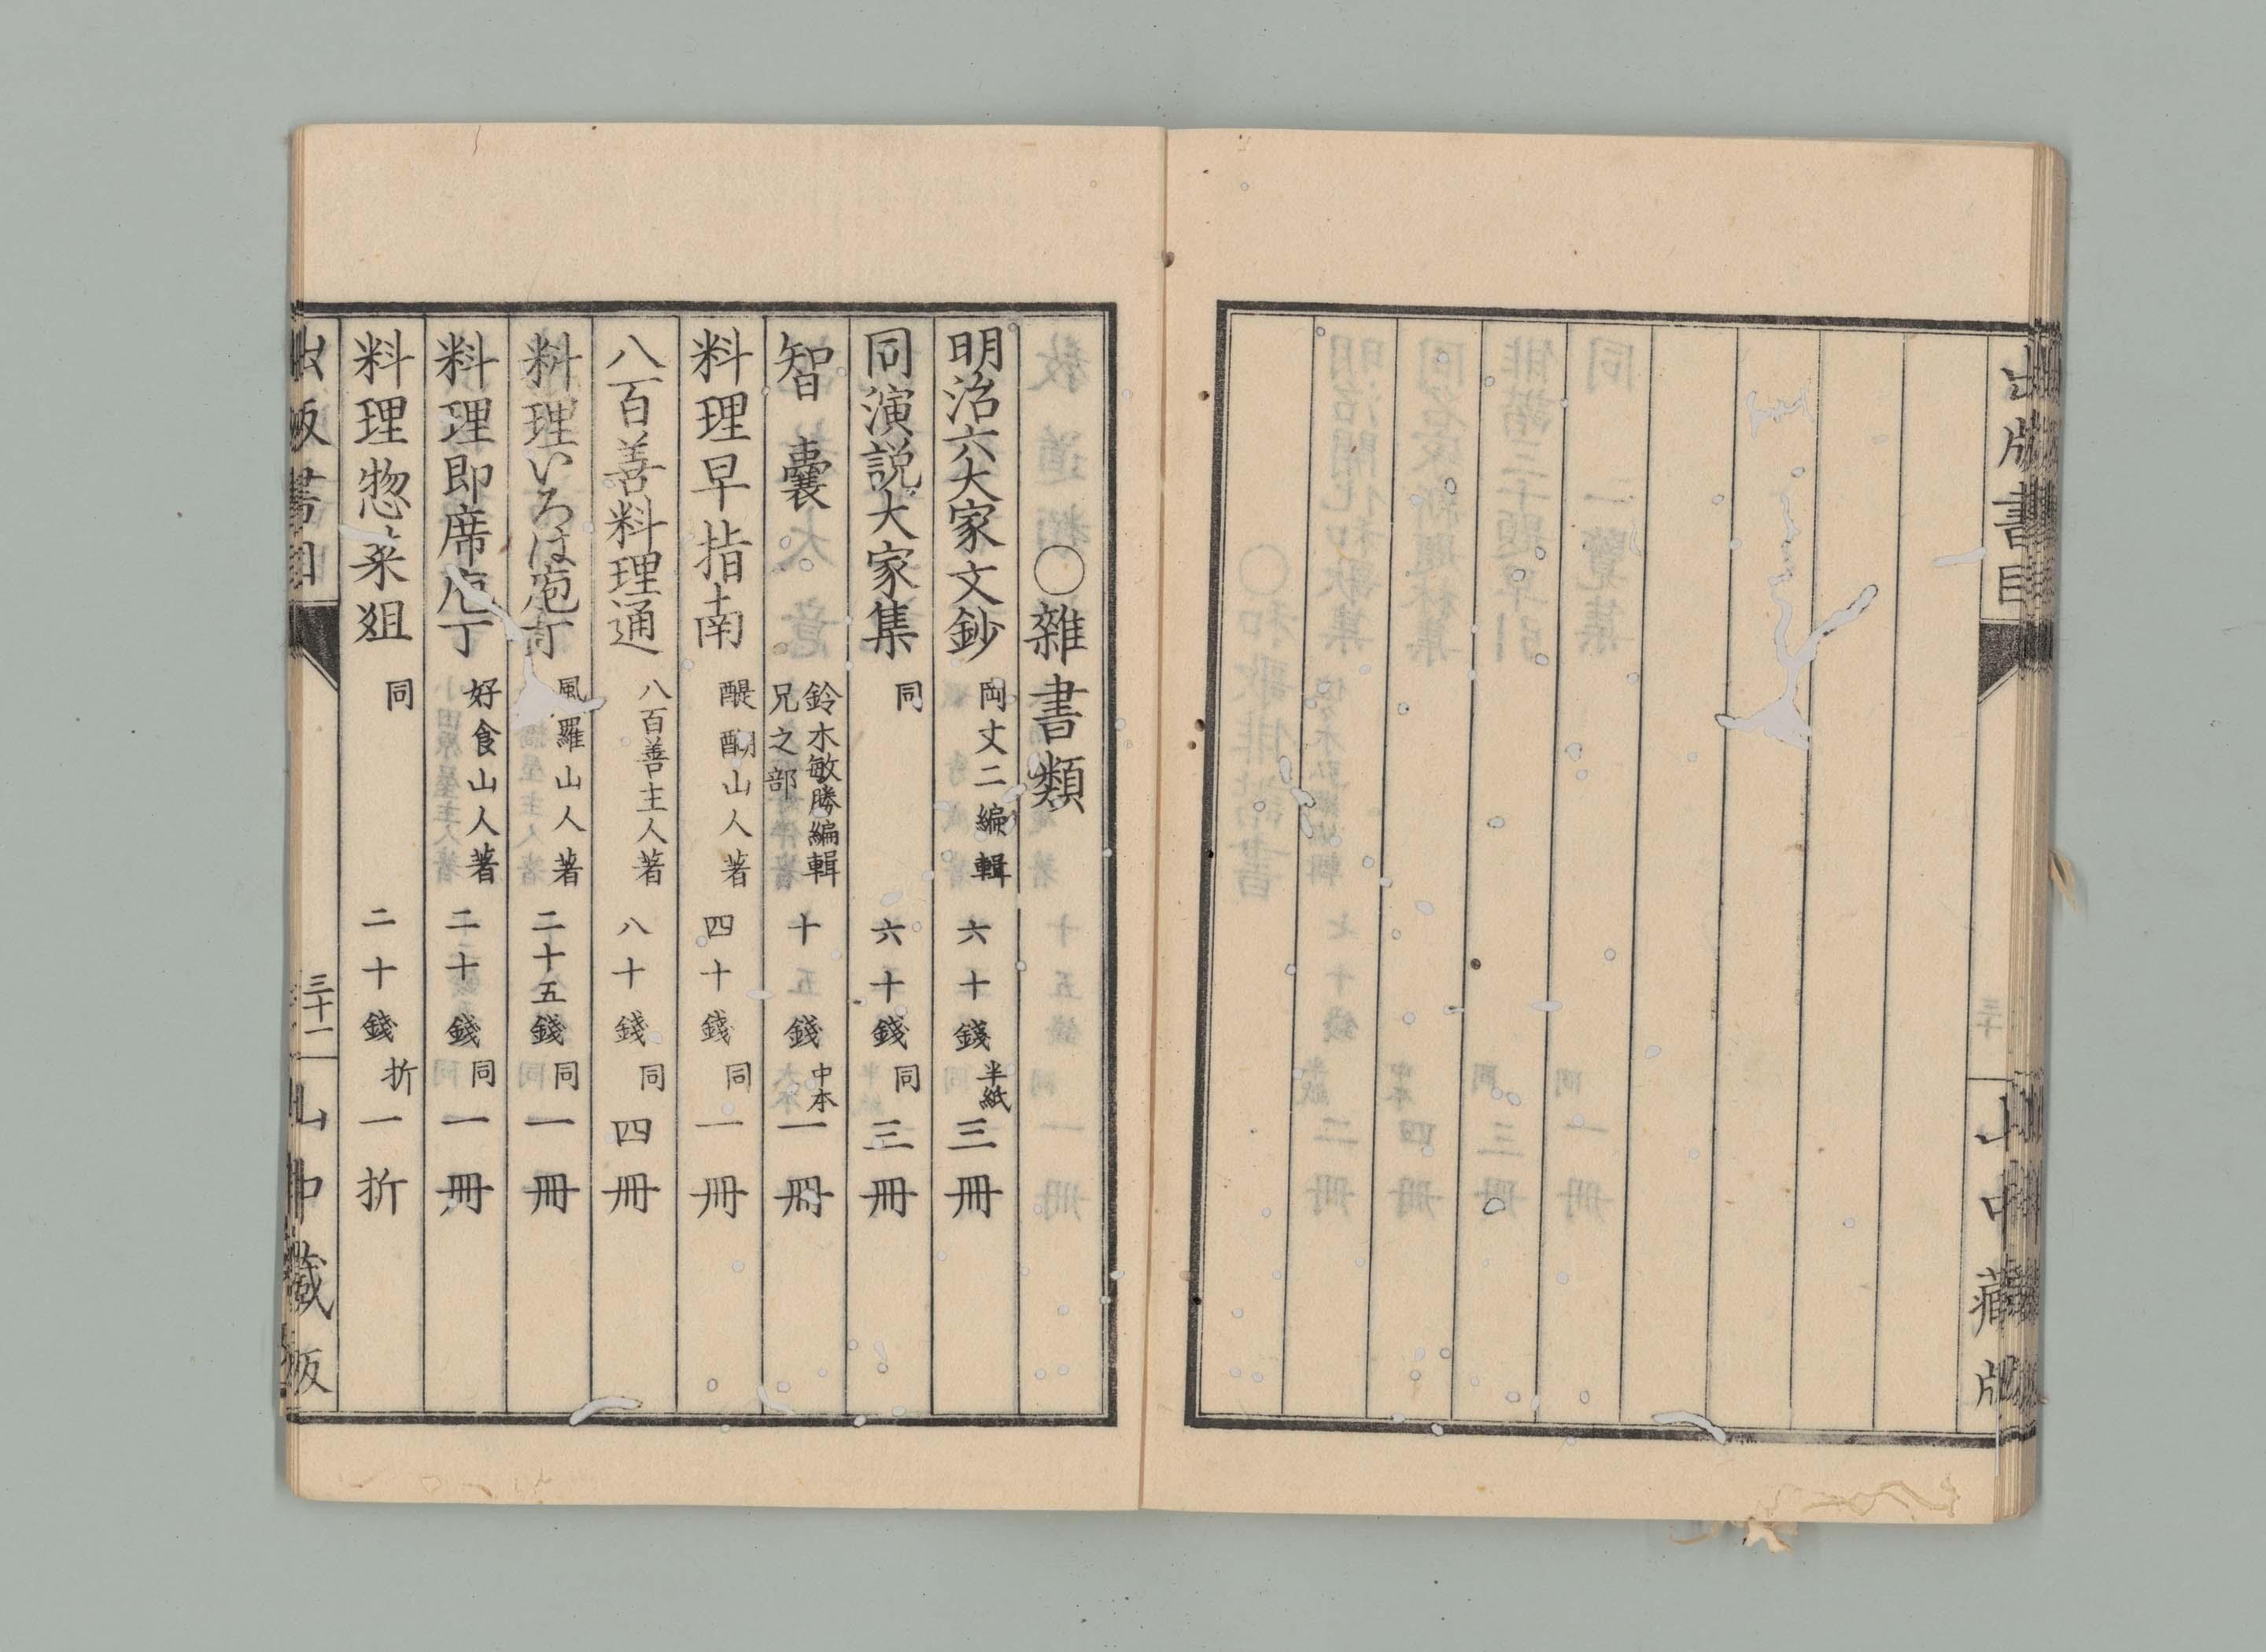 出版書目
山中藏版
○雜書類
明治六大家文鈔 岡丈二編輯 六十錢 半紙 三冊
同演説大家集 同 六十錢 同 三冊
智囊 鈴木敏勝編輯 兄之部 十錢 中本 一冊
料理早指南 醍醐山人著 四十錢 同 一冊
八百善料理通 八百善主人著 八十錢 同 四冊
料理いろは庖丁 風羅山人著 二十五錢 同 一冊
料理即席庖丁 好食山人著 二十錢 同 一冊
料理惣菜俎 同 二十錢 折 一折
出版書目
三十一
山中藏版